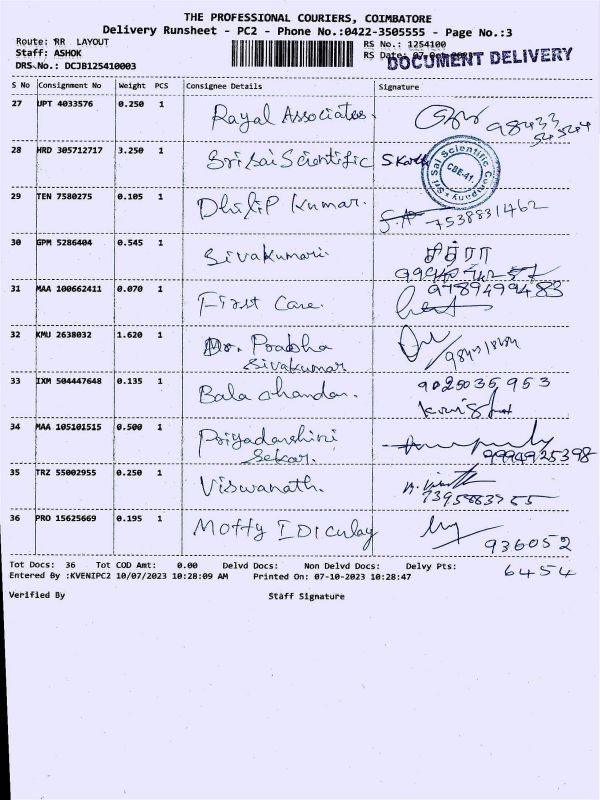 THE PROFESSIONAL COURIERS, COIMBATORE
Delivery Runsheet - PC2 - Phone No.:0422-3505555 - Page No.:3
Route: RR LAYOUT
RS No.: 1254100
Staff: ASHOK
RS Date:
DOCUMENT DELIVERY
DRS No.: DCJB125410003
S No Consignment No Weight PCS Consignee Details Signature
27 UPT 4033576 0.250 1 Rayal Associates. 98433
28 HRD 305712717 3.250 1 Sri Sai Scientific
Sri Sai Scientific Company
CBE-41.
29 TEN 7580275 0.105 1 Dhilip Kumar. 7538831462
30 GPM 5286404 0.545 1 Sivakumari.
31 MAA 100662411 0.070 1 First Care. 9789499483
32 KMU 2638032 1.620 1 Dr. Prabha
Sivakumar
33 IXM 504447648 0.135 1 Bala chandar. 9025035953
34 MAA 105101515 0.500 1 Priyadarshini
Sekar. 9994925398
35 TRZ 55002955 0.250 1 Viswanath.
36 PRO 15625669 0.195 1 Motty IDiculay
936052
6454
Tot Docs: 36 Tot COD Amt: 0.00 Delvd Docs: Non Delvd Docs: Delvy Pts:
Entered By :KVENIPC2 10/07/2023 10:28:09 AM Printed On: 07-10-2023 10:28:47
Verified By Staff Signature